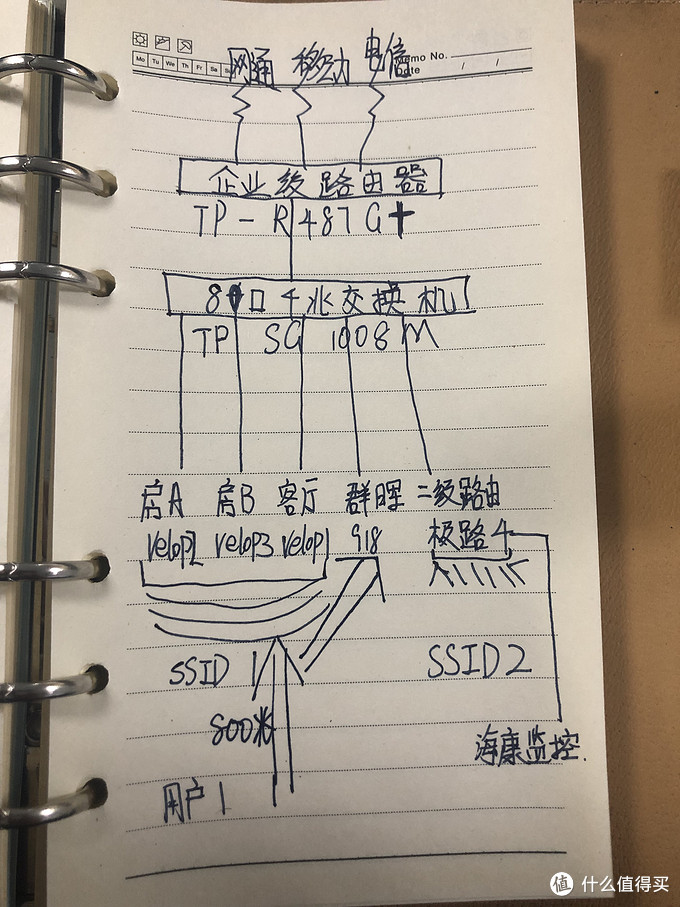 Memo No.
Mo Tu We Th Fr Sa Su
Date / /
网通 移动 电信
企业级路由器
TP-R487G+
8口千兆交换机
TP SG 1008M
房A 房B 客厅 群晖 二级路由
velop2 velop3 velop1 918 极路4
SSID 1 SSID2
800兆
海康监控.
用户1
值 什么值得买